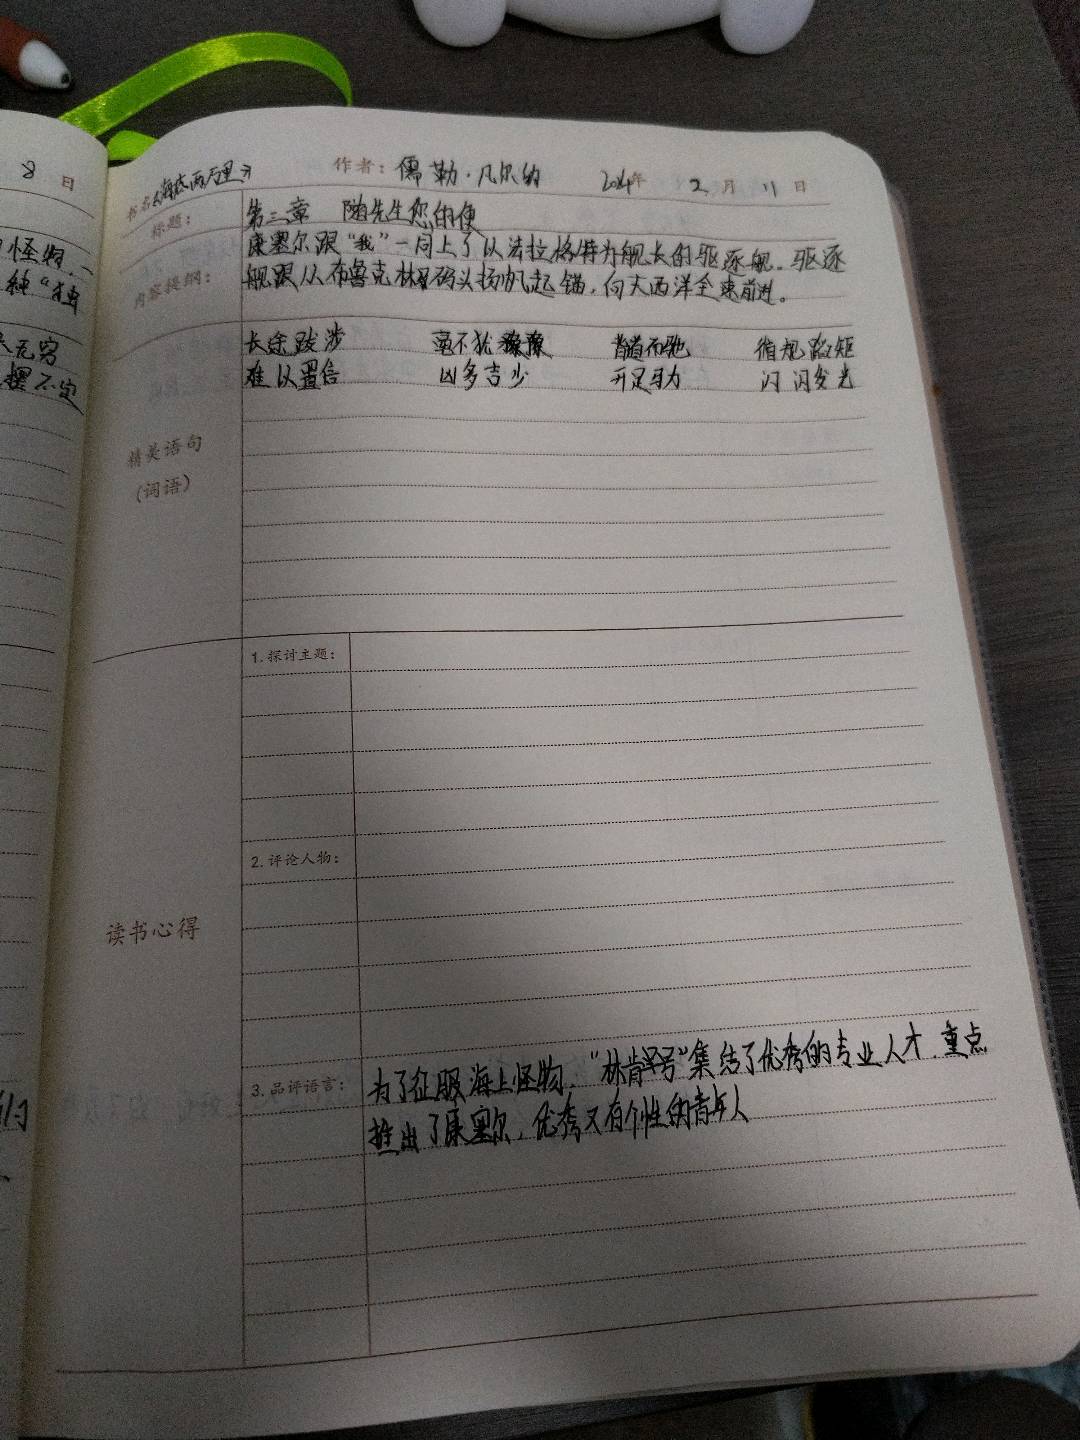 8 日
怪物,一
纯“独
无穷
摆不定
们
书名:《海底两万里》 作者:儒勒·凡尔纳 2024年 2月 11日
标题: 第三章 随先生您的便
内容提纲: 康塞尔跟“我”一同上了以法拉格特为舰长的驱逐舰。驱逐
舰跟从布鲁克林码头扬帆起锚,向大西洋全速前进。
长途跋涉 毫不犹豫 背道而驰 循规蹈矩
难以置信 凶多吉少 开足马力 闪闪发光
精美语句
(词语)
读书心得
1.探讨主题:
2.评论人物:
3.品评语言: 为了征服海上怪物,“林肯号”集结了优秀的专业人才,重点
推出了康塞尔,优秀又有个性的青年人